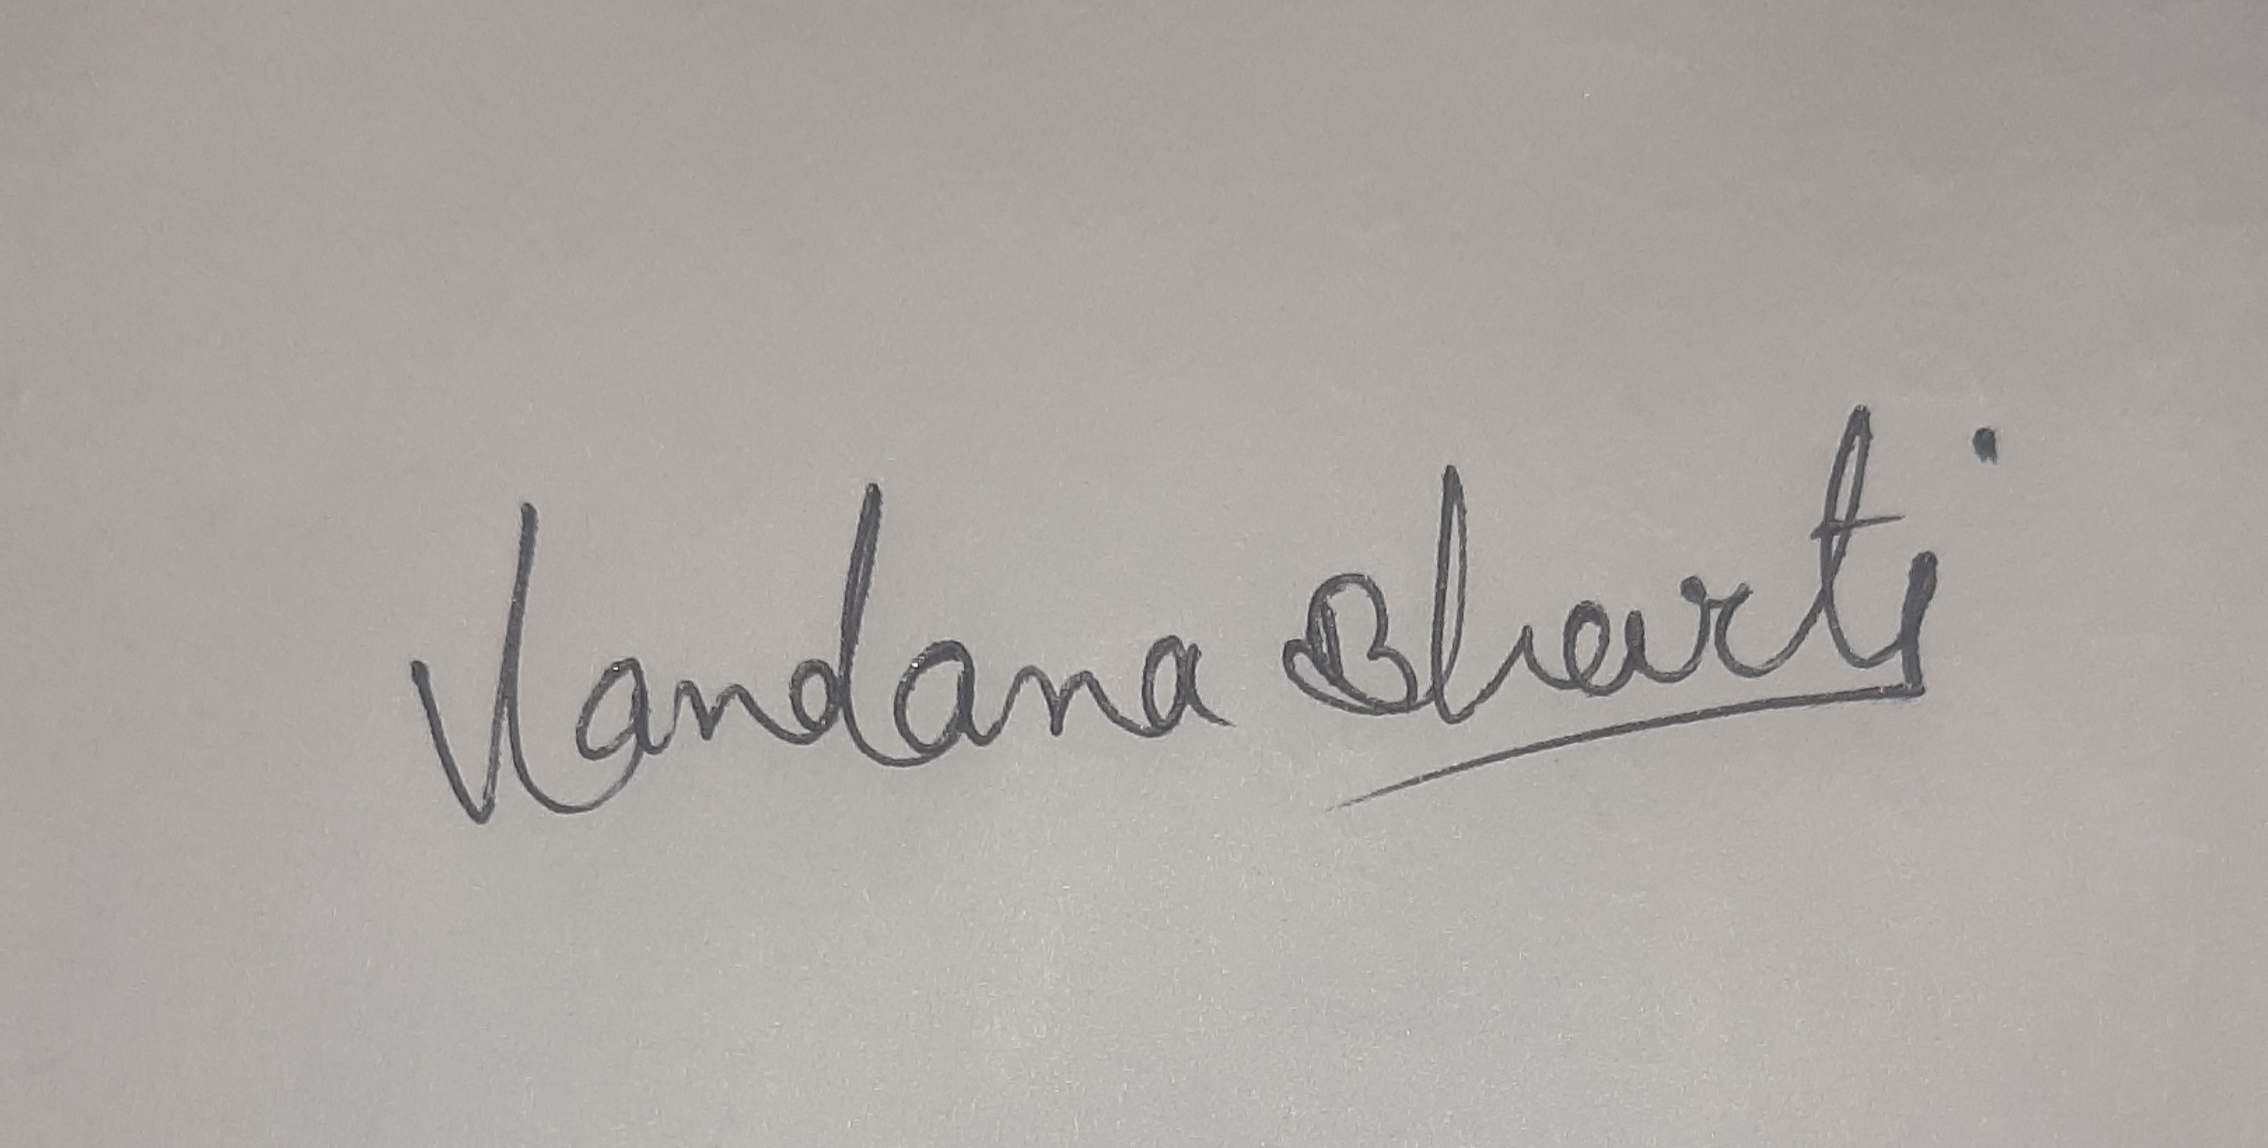 Vandana Bharti